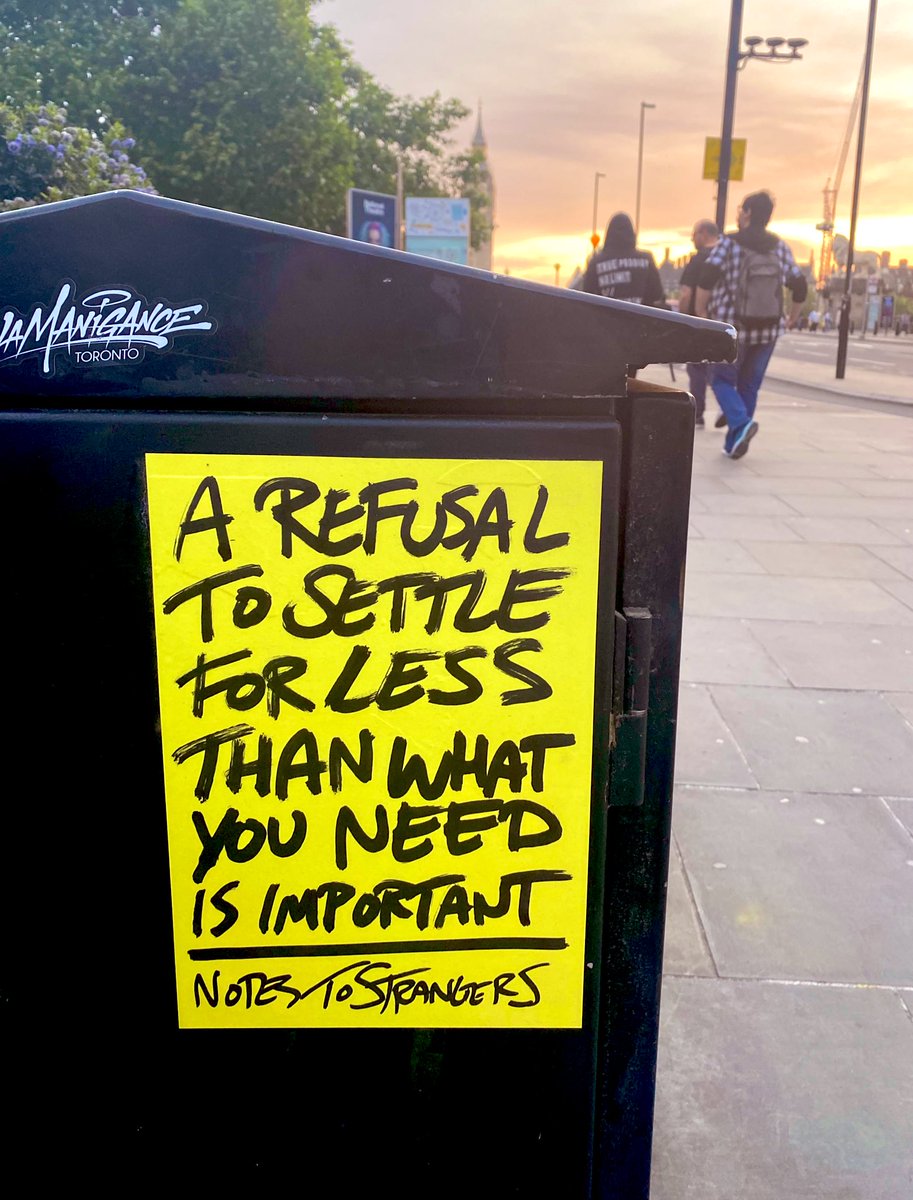 LAMANIGANCE
TORONTO
A REFUSAL
TO SETTLE
FOR LESS
THAN WHAT
YOU NEED
IS IMPORTANT
NOTES TO STRANGERS